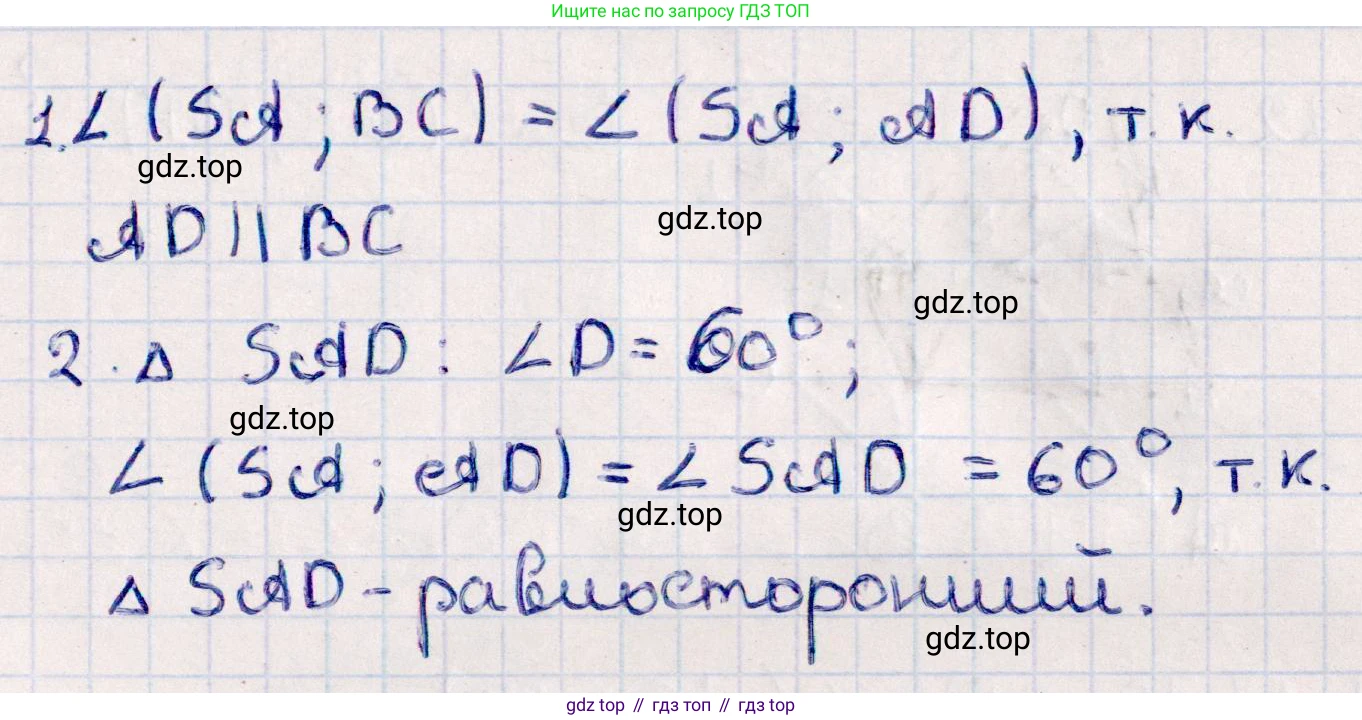 Ищите нас по запросу ГДЗ ТОП
1. ∠ (SA; BC) = ∠ (SA; AD), т. к.
gdz.top
AD || BC
gdz.top
gdz.top
2. Δ SAD: ∠D = 60°;
gdz.top
∠ (SA; AD) = ∠ SAD = 60°, т. к.
gdz.top
Δ SAD - равносторонний.
gdz.top
gdz top // гдз топ // гдз top